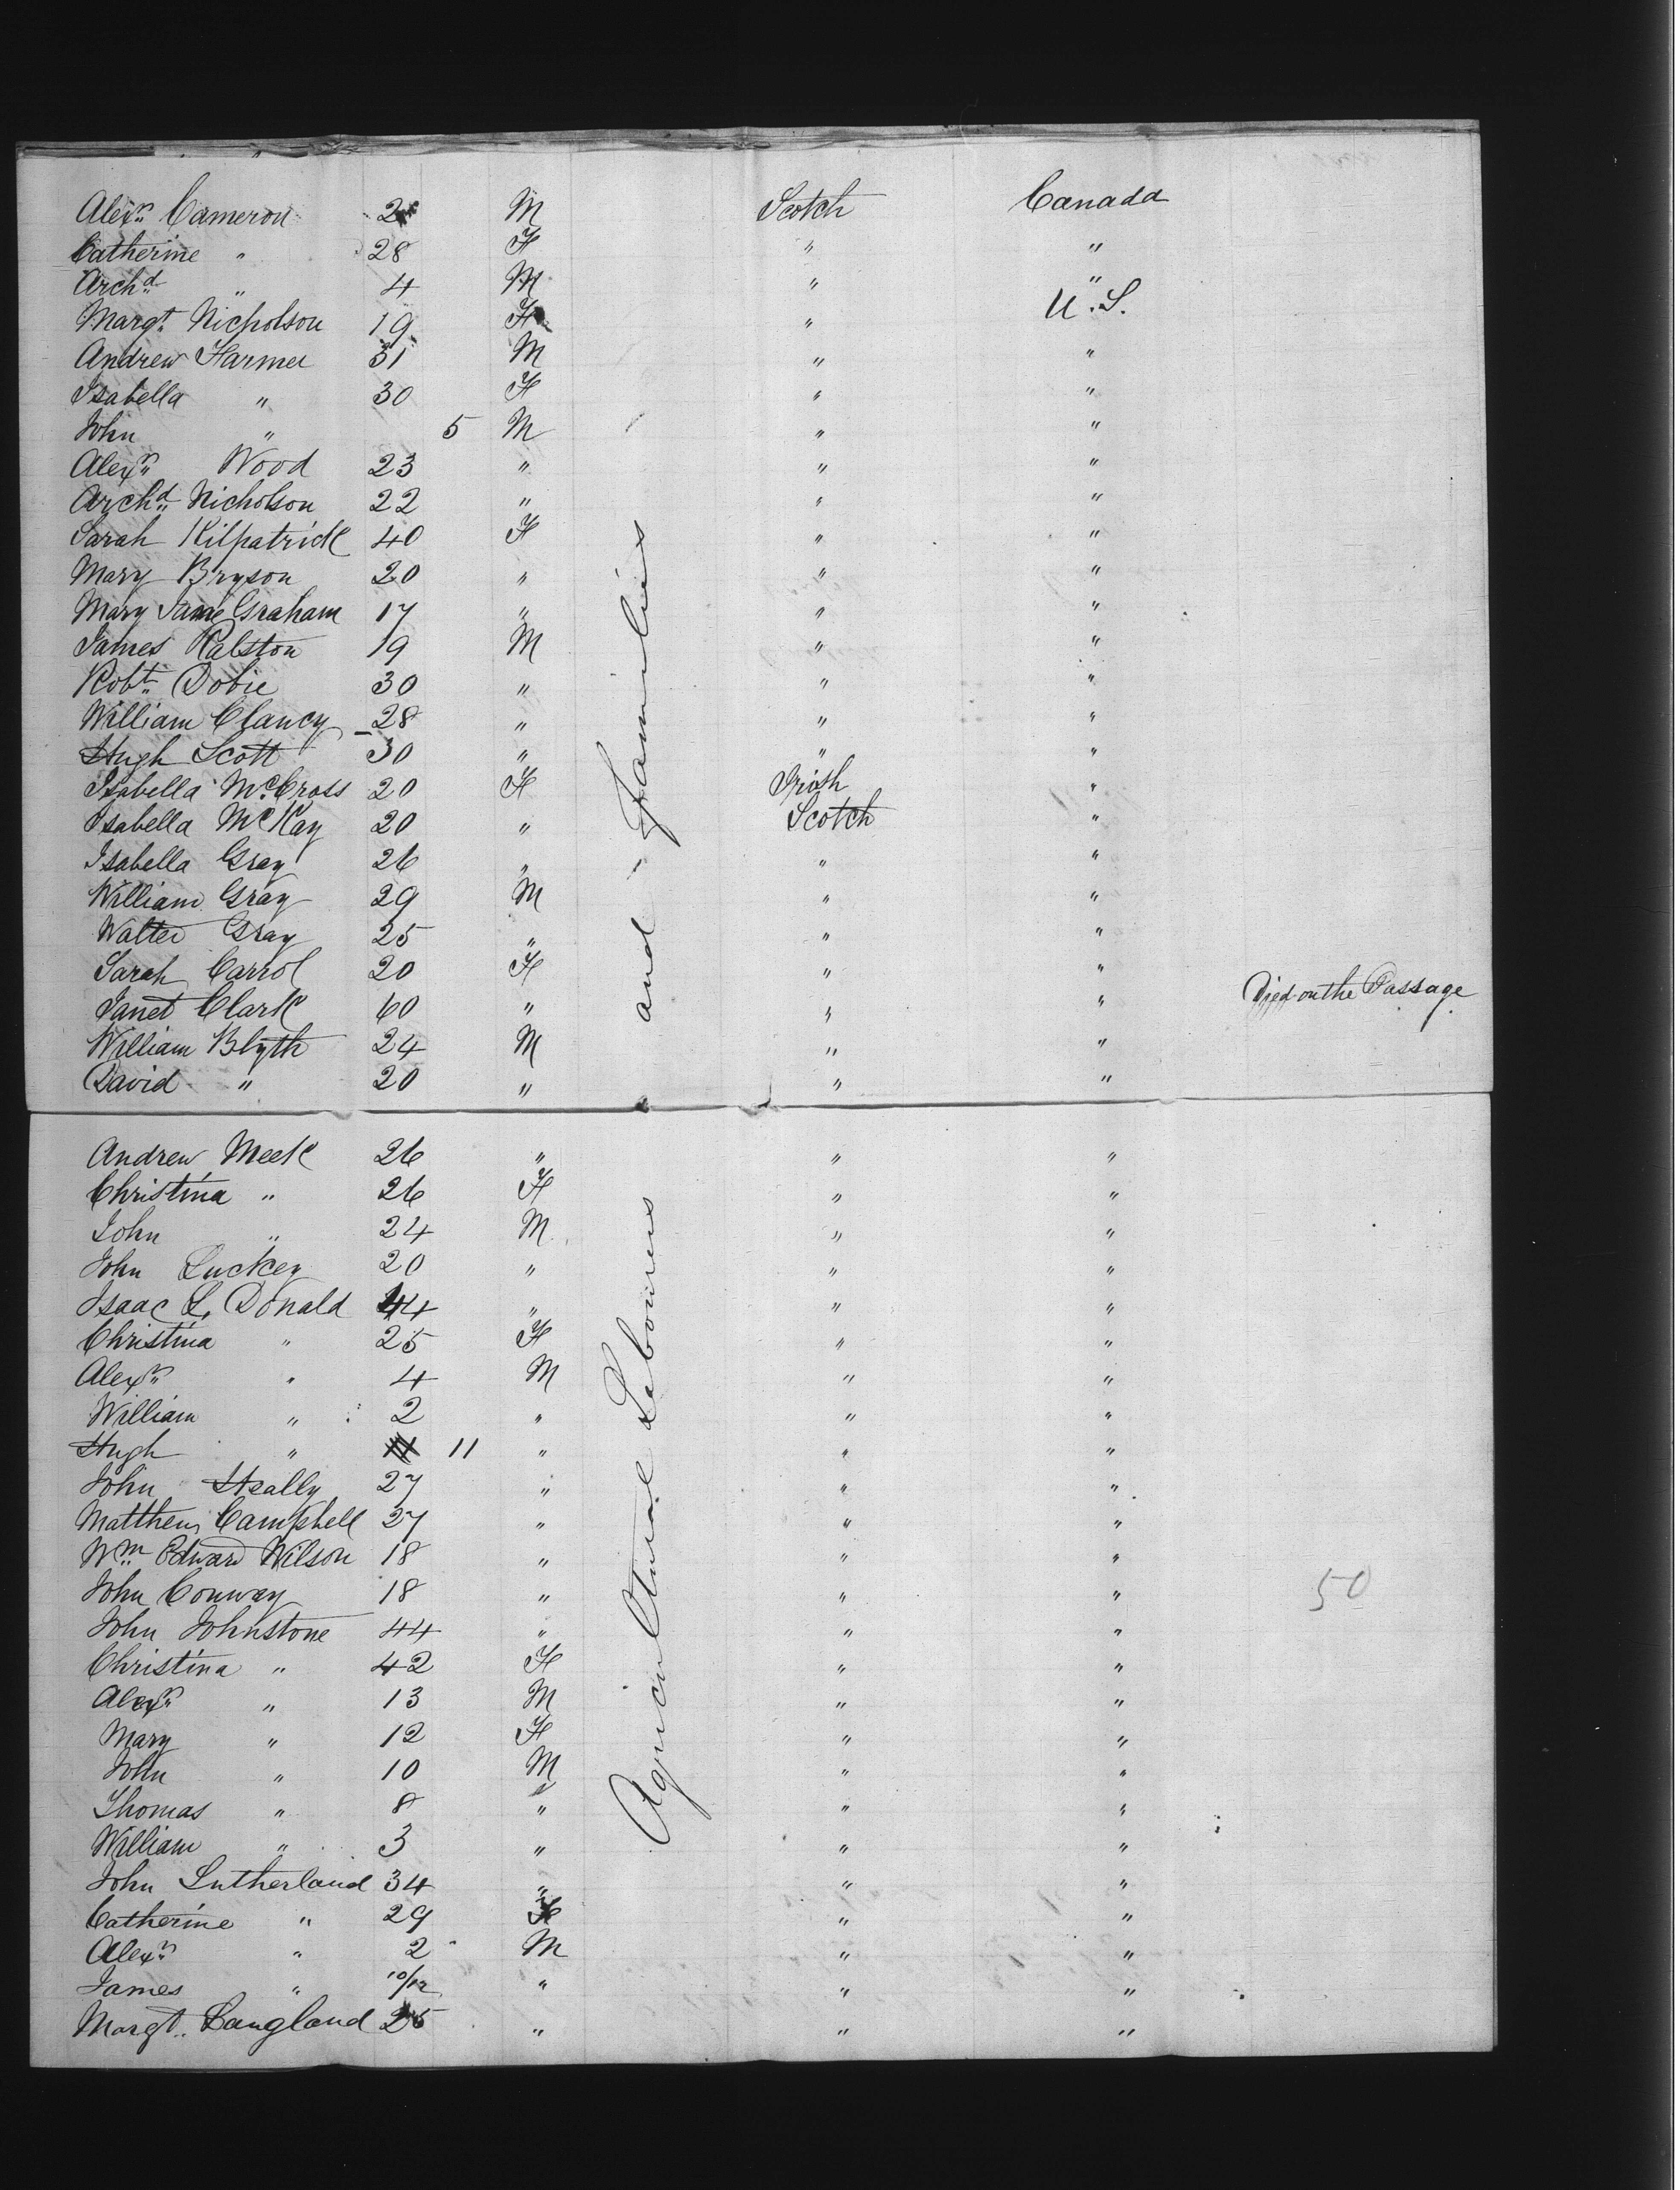 Alexr. Cameron 2 M Scotch Canada
Catherine " 28 F " "
Archd. " 4 M " "
Margt. Nicholson 19 F " U.S.
Andrew Harmer 31 M " "
Isabella " 30 F " "
John " 5 M " "
Alexr. Wood 23 " " "
Archd. Nicholson 22 " " "
Sarah Kilpatrick 40 F " "
Mary Bryson 20 " " "
Mary Jane Graham 17 " " "
James Ralston 19 M " "
Robt. Dobie 30 " " "
William Clancy 28 " " "
Hugh Scott 30 " " "
Isabella McCross 20 F Irish "
Isabella McKay 20 " Scotch "
Isabella Gray 26 " " "
William Gray 29 M " "
Walter Gray 25 " " "
Sarah Carrol 20 F " "
Janet Clark 60 " " " Died on the Passage
William Blyth 24 M " "
David " 20 " " "
Andrew Meek 26 " " "
Christina " 26 F " "
John " 24 M " "
John Luckey 20 " " "
Isaac L. Donald 44 " " "
Christina " 25 F " "
Alexr. " 4 M " "
William " 2 " " "
Hugh " 11 " " "
John Heally 27 " " "
Matthew Campbell 27 " " "
Wm. Edward Wilson 18 " " "
John Conway 18 " " " 50
John Johnstone 44 " " "
Christina " 42 F " "
Alexr. " 13 M " "
Mary " 12 F " "
John " 10 M " "
Thomas " 8 " " "
William " 3 " " "
John Sutherland 34 " " "
Catherine " 29 F " "
Alexr. " 2 M " "
James " 10/12 " " "
Margt. Langland 25 " " "
Agricultural Labourers and Families